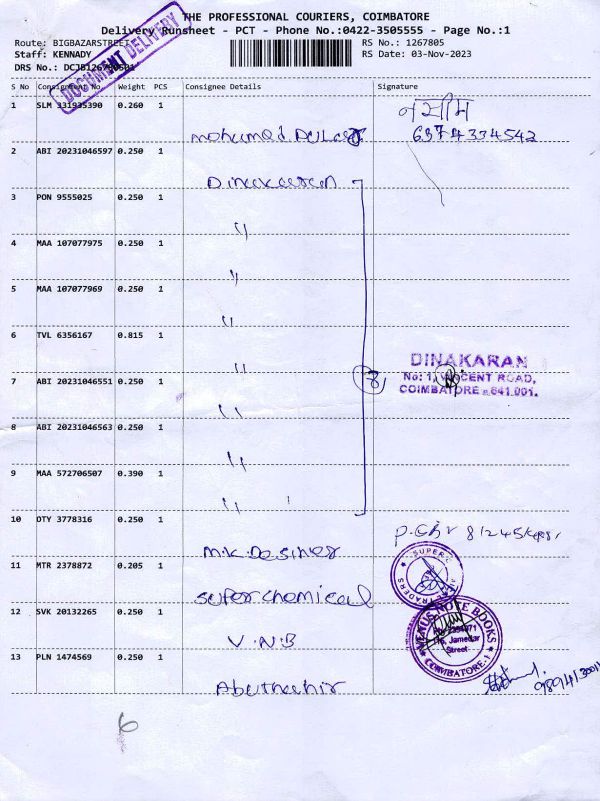 THE PROFESSIONAL COURIERS, COIMBATORE
Delivery Runsheet - PCT - Phone No.:0422-3505555 - Page No.:1
DOCUMENT DELIVERY
Route: BIGBAZARSTREET
RS No.: 1267805
Staff: KENNADY
RS Date: 03-Nov-2023
DRS No.:
S No Consignment No. Weight PCS Consignee Details Signature
1 SLM 331935390 0.260 1
नसीम
mohamed 6374334542
2 ABI 20231046597 0.250 1
Dinakaran
3 PON 9555025 0.250 1
"
4 MAA 107077975 0.250 1
"
5 MAA 107077969 0.250 1
"
6 TVL 6356167 0.815 1
"
DINAKARAN
7 ABI 20231046551 0.250 1
8
COIMBATORE - 641.001.
"
8 ABI 20231046563 0.250 1
"
9 MAA 572706507 0.390 1
"
10 OTY 3778316 0.250 1
M.K. Desiner
11 MTR 2378872 0.205 1
SUPER C
TRADERS
super chemical
12 SVK 20132265 0.250 1
VENUS NOTE BOOKS
Jamedar
Street
COIMBATORE.1
V.N.B
13 PLN 1474569 0.250 1
Abuthahir
6